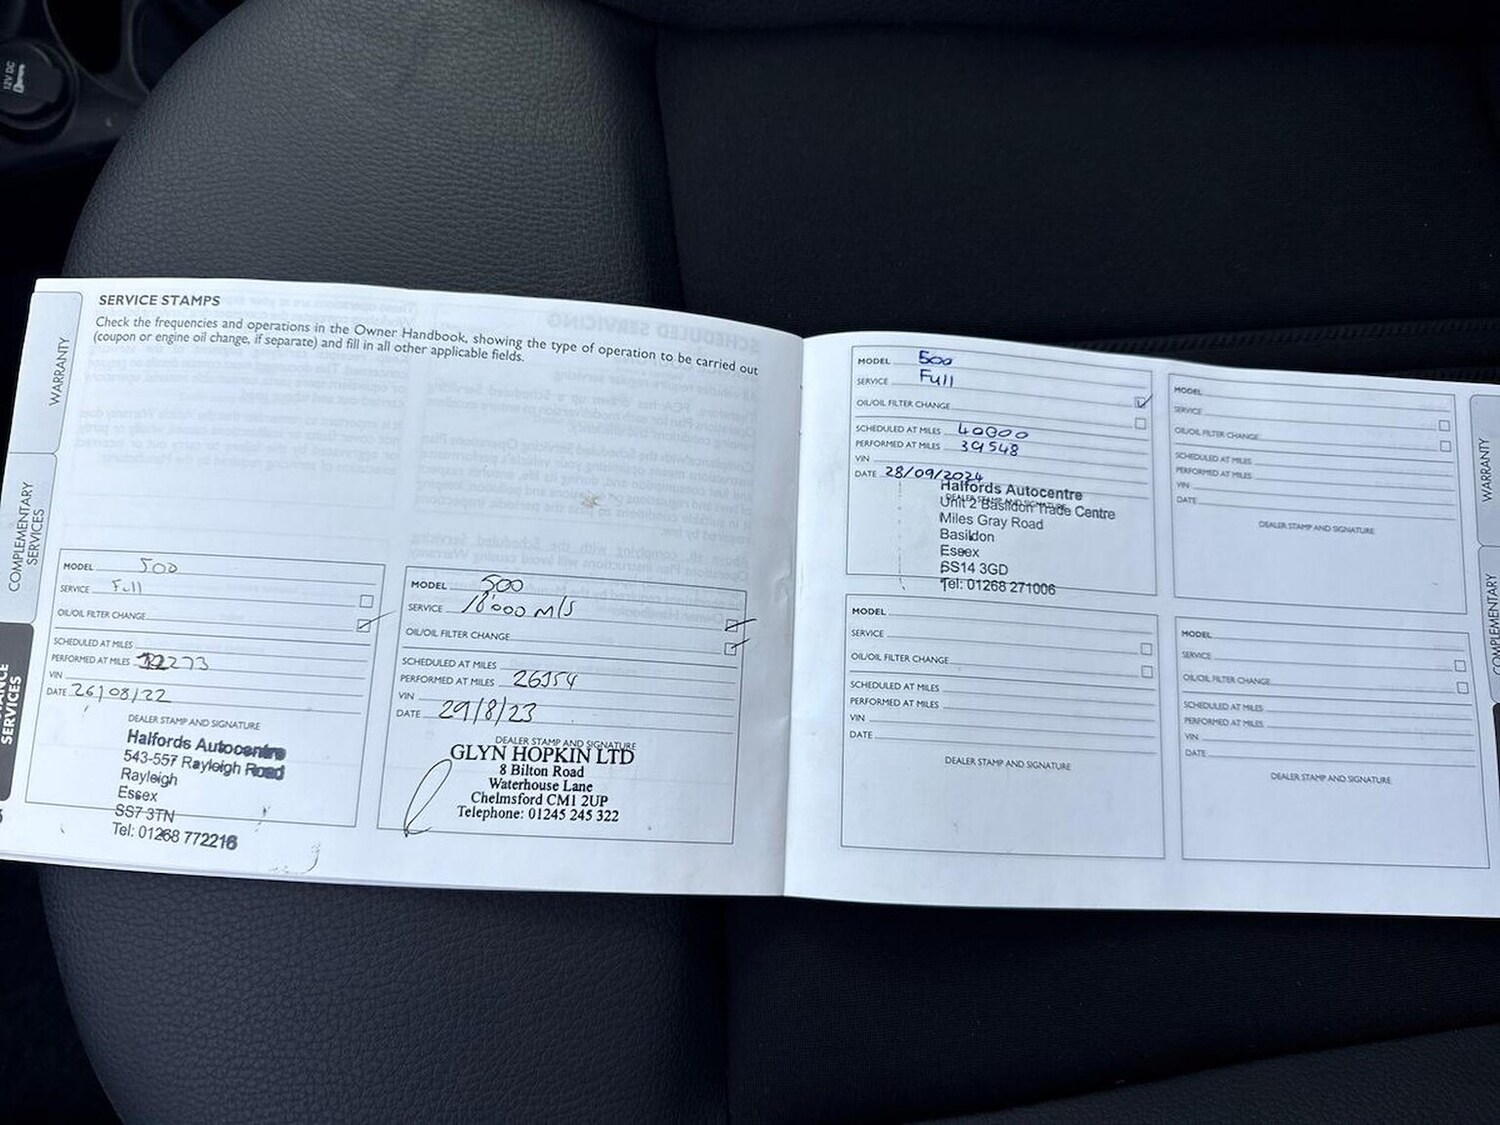 12V DC
WARRANTY
COMPLEMENTARY
SERVICES
SERVICES
SERVICE STAMPS
Check the frequencies and operations in the Owner Handbook, showing the type of operation to be carried out
(coupon or engine oil change, if separate) and fill in all other applicable fields.
MODEL 500
SERVICE Full
OIL/OIL FILTER CHANGE
SCHEDULED AT MILES
PERFORMED AT MILES
VIN
DATE 26/08/22
DEALER STAMP AND SIGNATURE
Halfords Autocentre
543-557 Rayleigh Road
Rayleigh
Essex
SS7 3TN
Tel: 01268 772216
MODEL 500
SERVICE 18'000 MLS
OIL/OIL FILTER CHANGE
SCHEDULED AT MILES
PERFORMED AT MILES 26154
VIN
DATE 29/8/23
DEALER STAMP AND SIGNATURE
GLYN HOPKIN LTD
8 Bilton Road
Waterhouse Lane
Chelmsford CM1 2UP
Telephone: 01245 245 322
MODEL 500
SERVICE Full
OIL/OIL FILTER CHANGE
SCHEDULED AT MILES 40000
PERFORMED AT MILES 39548
VIN
DATE 28/09/2024
DEALER STAMP AND SIGNATURE
Halfords Autocentre
Unit 2 Basildon Trade Centre
Miles Gray Road
Basildon
Essex
SS14 3GD
Tel: 01268 271006
MODEL
SERVICE
OIL/OIL FILTER CHANGE
SCHEDULED AT MILES
PERFORMED AT MILES
VIN
DATE
DEALER STAMP AND SIGNATURE
MODEL
SERVICE
OIL/OIL FILTER CHANGE
SCHEDULED AT MILES
PERFORMED AT MILES
VIN
DATE
DEALER STAMP AND SIGNATURE
MODEL
SERVICE
OIL/OIL FILTER CHANGE
SCHEDULED AT MILES
PERFORMED AT MILES
VIN
DATE
DEALER STAMP AND SIGNATURE
WARRANTY
COMPLEMENTARY